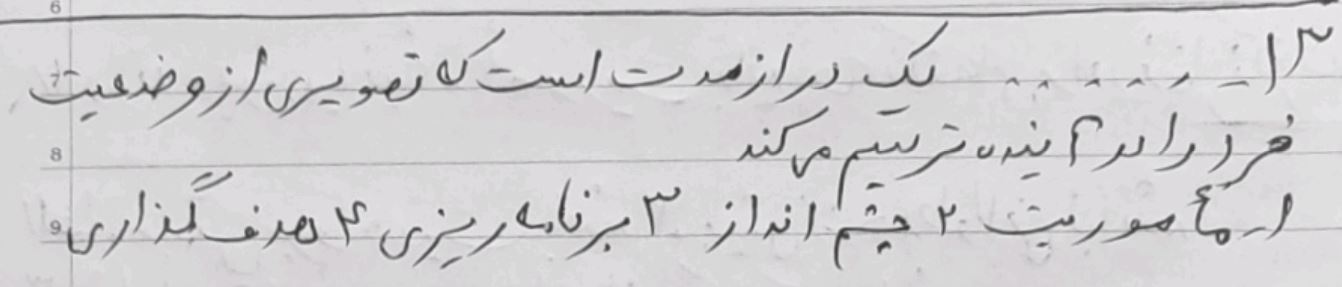 ۱۳ـ ........ یک دراز مدت است که تصویری از وضعیت
فرد را در آینده ترسیم می کند
۱ـ مأموریت ۲ چشم انداز ۳ برنامه ریزی ۴ هدف گذاری
6
7
8
9